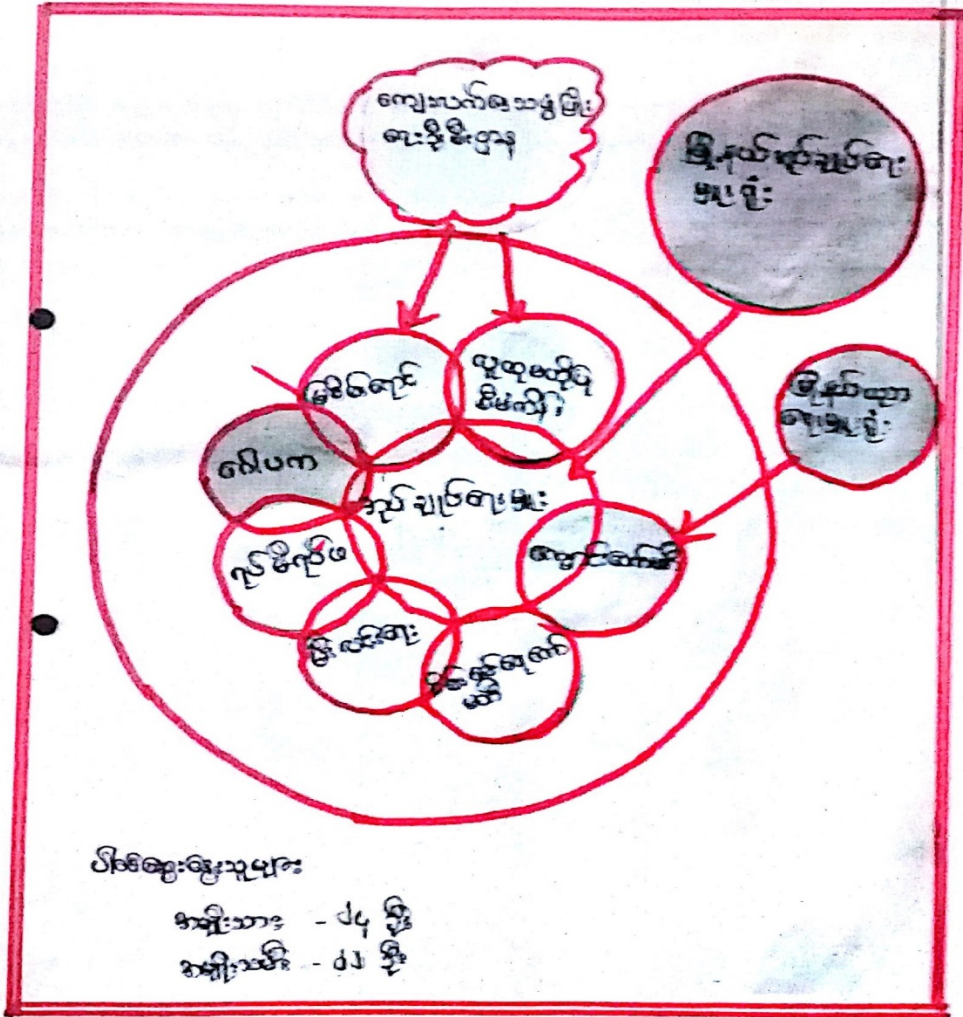 ကျေးလက်ဒေသဖွံ့ဖြိုး
ရေးဦးစီးဌာန
မြို့နယ်အုပ်ချုပ်ရေး
မှူးရုံး
မြစိမ်းရောင်
လူထုဗဟိုပြု
စီမံကိန်း
မြို့နယ်ပညာ
ရေးမှူးရုံး
ဂေါပက
အုပ်ချုပ်ရေးမှူး
ရပ်မိရပ်ဖ
ကျောင်းကော်မတီ
မီးလင်းရေး
ကော်
မတီ
ပါဝင်ဆွေးနွေးသူများ
အမျိုးသား - ၂၄ ဦး
အမျိုးသမီး - ဦး